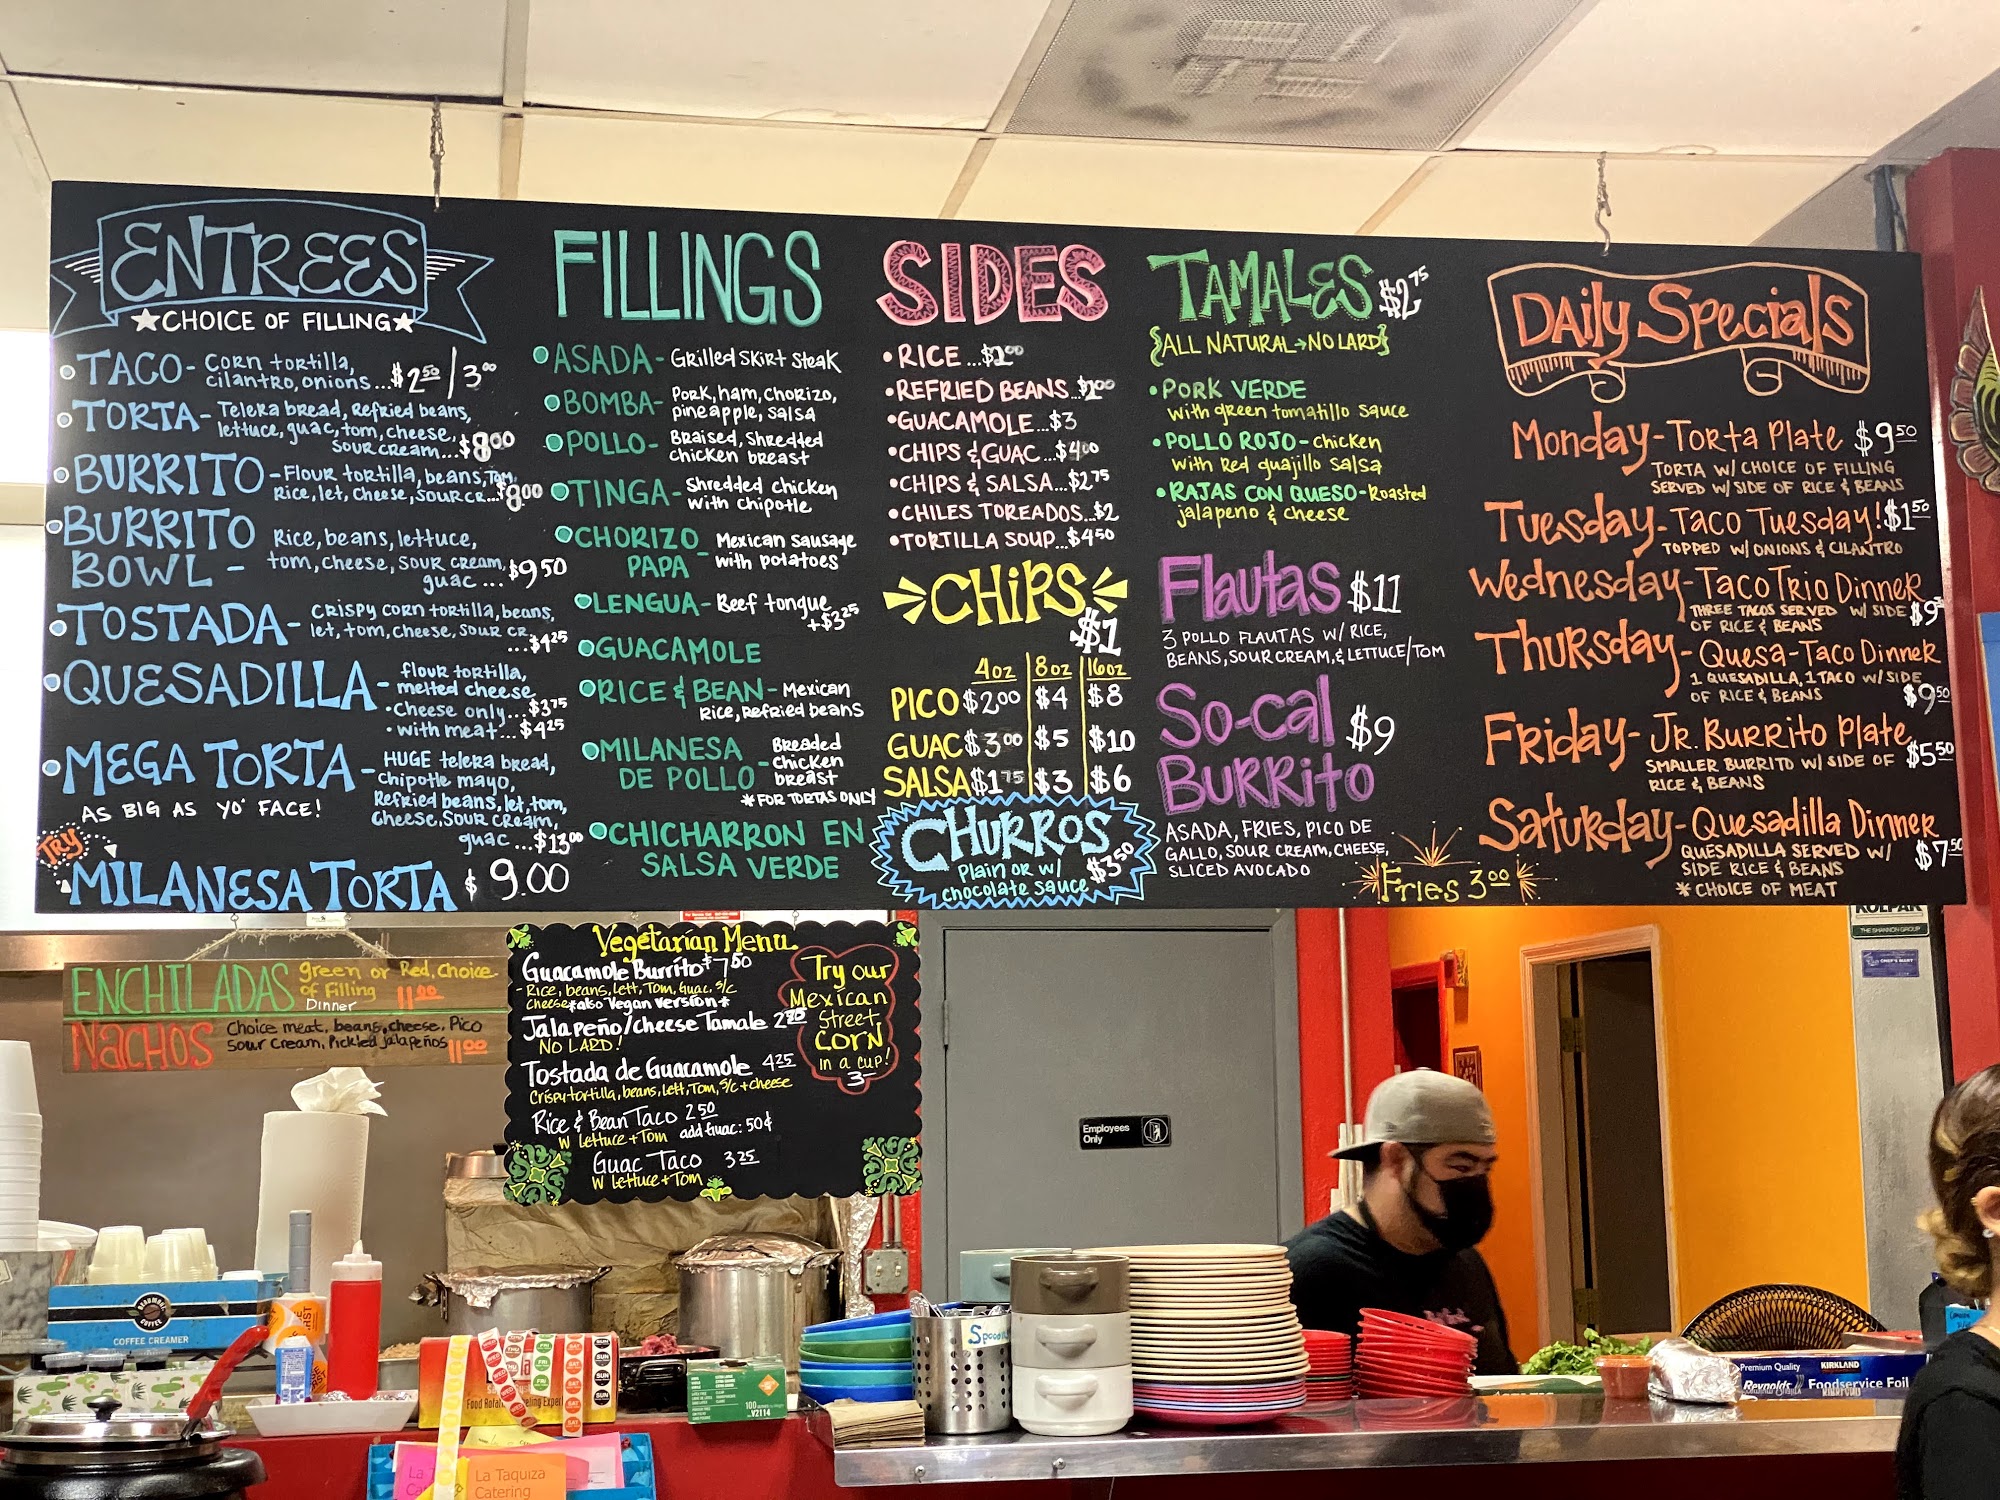 ENTREES
★CHOICE OF FILLING★
TACO - Corn tortilla,
cilantro, onions...$2.50 / 3.00
TORTA - Telera bread, Refried beans,
lettuce, guac, tom, cheese,
sour cream...$8.00
BURRITO - Flour tortilla, beans, Tom,
Rice, let, cheese, sour cr...$8.00
BURRITO
BOWL -
Rice, beans, lettuce,
tom, cheese, sour cream,
guac ... $9.50
TOSTADA - Crispy corn tortilla, beans,
let, tom, cheese, sour cr.
...$4.25
QUESADILLA - flour tortilla,
melted cheese
• Cheese only...$3.75
• with meat...$4.25
MEGA TORTA - HUGE telera bread,
AS BIG AS YO' FACE!
chipotle mayo,
Refried beans, let, tom,
cheese, sour cream,
guac ...$13.00
TRY
MILANESA TORTA $ 9.00
FILLINGS
ASADA - Grilled skirt steak
BOMBA - Pork, ham, chorizo,
pineapple, salsa
POLLO - Braised, shredded
chicken breast
TINGA - Shredded chicken
with chipotle
CHORIZO
PAPA - Mexican sausage
with potatoes
LENGUA - Beef tongue
+$3.25
GUACAMOLE
RICE & BEAN - Mexican
Rice, Refried beans
MILANESA
DE POLLO - Breaded
chicken
breast
*FOR TORTAS ONLY
CHICHARRON EN
SALSA VERDE
SIDES
• RICE...$2.00
• REFRIED BEANS...$2.00
• GUACAMOLE...$3
• CHIPS & GUAC...$4.00
• CHIPS & SALSA...$2.75
• CHILES TOREADOS...$2
• TORTILLA SOUP...$4.50
CHIPS
$1
4oz 8oz 16oz
PICO $2.00 $4 $8
GUAC $3.00 $5 $10
SALSA $1.75 $3 $6
CHURROS
Plain or w/
chocolate sauce
$3.50
TAMALES $2.75
{ALL NATURAL→NO LARD}
• PORK VERDE
with green tomatillo sauce
• POLLO ROJO - chicken
with Red guajillo salsa
• RAJAS CON QUESO - Roasted
jalapeno & cheese
Flautas $11
3 POLLO FLAUTAS W/ RICE,
BEANS, SOUR CREAM, & LETTUCE/TOM
So-cal
Burrito $9
ASADA, FRIES, PICO DE
GALLO, SOUR CREAM, CHEESE,
SLICED AVOCADO
Fries 3.00
Daily Specials
Monday - Torta Plate $9.50
TORTA W/ CHOICE OF FILLING
SERVED W/ SIDE OF RICE & BEANS
Tuesday - Taco Tuesday! $1.50
TOPPED W/ ONIONS & CILANTRO
Wednesday - Taco Trio Dinner
THREE TACOS SERVED W/ SIDE $9
OF RICE & BEANS
Thursday - Quesa-Taco Dinner
1 QUESADILLA, 1 TACO W/ SIDE
OF RICE & BEANS $9.50
Friday - Jr. Burrito Plate
SMALLER BURRITO W/ SIDE OF $5.50
RICE & BEANS
Saturday - Quesadilla Dinner
QUESADILLA SERVED W/ $7.50
SIDE RICE & BEANS
* CHOICE OF MEAT
ENCHILADAS green or Red, choice
of Filling 11.00
Dinner
NACHOS Choice meat, beans, cheese, Pico
Sour Cream, Pickled jalapeños 11.00
Vegetarian Menu
Guacamole Burrito $7.50
- Rice, beans, Lett, Tom, Guac, s/c
Cheese *also Vegan version*
Jalapeño/cheese Tamale 2.75
NO LARD!
Tostada de Guacamole 4.25
Crispy tortilla, beans, Lett, Tom, s/c + cheese
Rice & Bean Taco 2.50
W Lettuce + Tom add Guac: 50¢
Guac Taco 3.25
W Lettuce + Tom
Try our
Mexican
Street
Corn
in a cup!
3-
Employees
Only
KOLPAK
THE SHANNON GROUP
COFFEE CREAMER
Spoons
100
V2114
La Taquiza
Catering
Premium Quality
KIRKLAND
Reynolds
Foodservice Foil